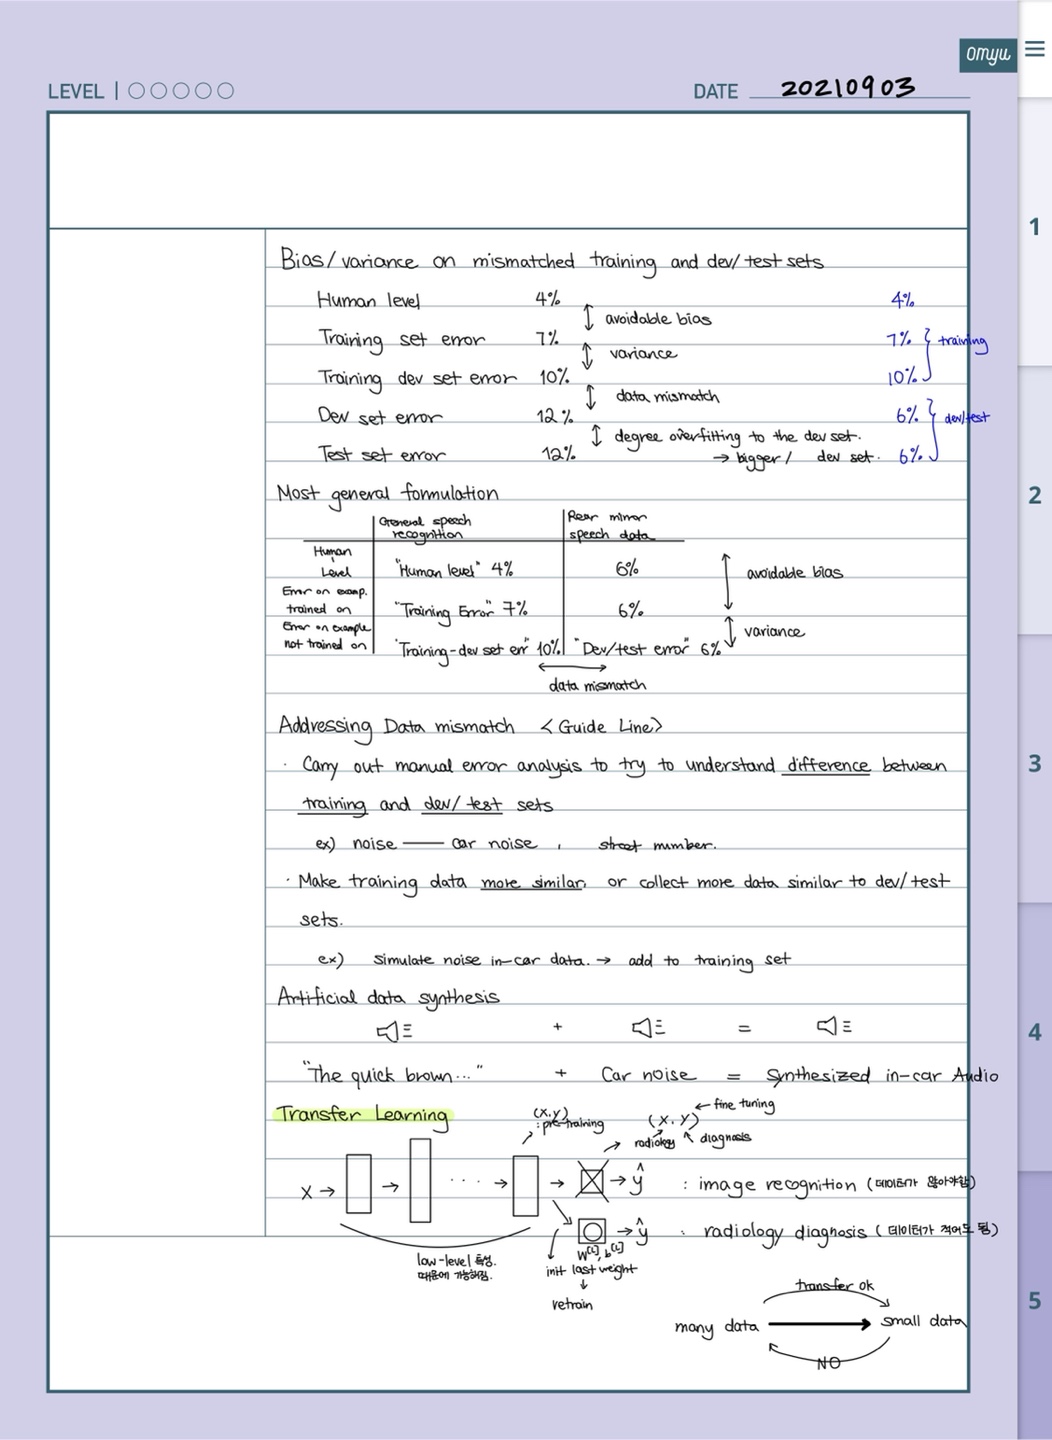 omyu
LEVEL
DATE 20210903
Bias/variance on mismatched training and dev/test sets
Human level 4% 4%
avoidable bias
Training set error 7% 7% training
variance
Training dev set error 10% 10%
data mismatch
Dev set error 12% 6% dev/test
degree overfitting to the dev set.
Test set error 12% → bigger / dev set. 6%
Most general formulation
General speech recognition
Rear mirror speech data
Human Level "Human level" 4% 6% avoidable bias
Error on examp. trained on "Training Error" 7% 6%
Error on example not trained on "Training-dev set err" 10% "Dev/test error" 6% variance
data mismatch
Addressing Data mismatch <Guide Line>
· Carry out manual error analysis to try to understand difference between
training and dev/test sets
ex) noise — car noise, street number.
· Make training data more similar, or collect more data similar to dev/test
sets.
ex) simulate noise in-car data. → add to training set
Artificial data synthesis
+ =
"The quick brown..." + Car noise = Synthesized in-car Audio
Transfer Learning
(x,y) : pre-training
(x, y) ← fine tuning
radiology diagnosis
X → → ··· → → → ŷ : image recognition (데이터가 많아야함)
→ ŷ : radiology diagnosis (데이터가 적어도 됨)
W[L], b[L]
low-level 특성.
때문에 가능해짐.
init last weight
↓
retrain
transfer ok
many data → small data
NO
1
2
3
4
5